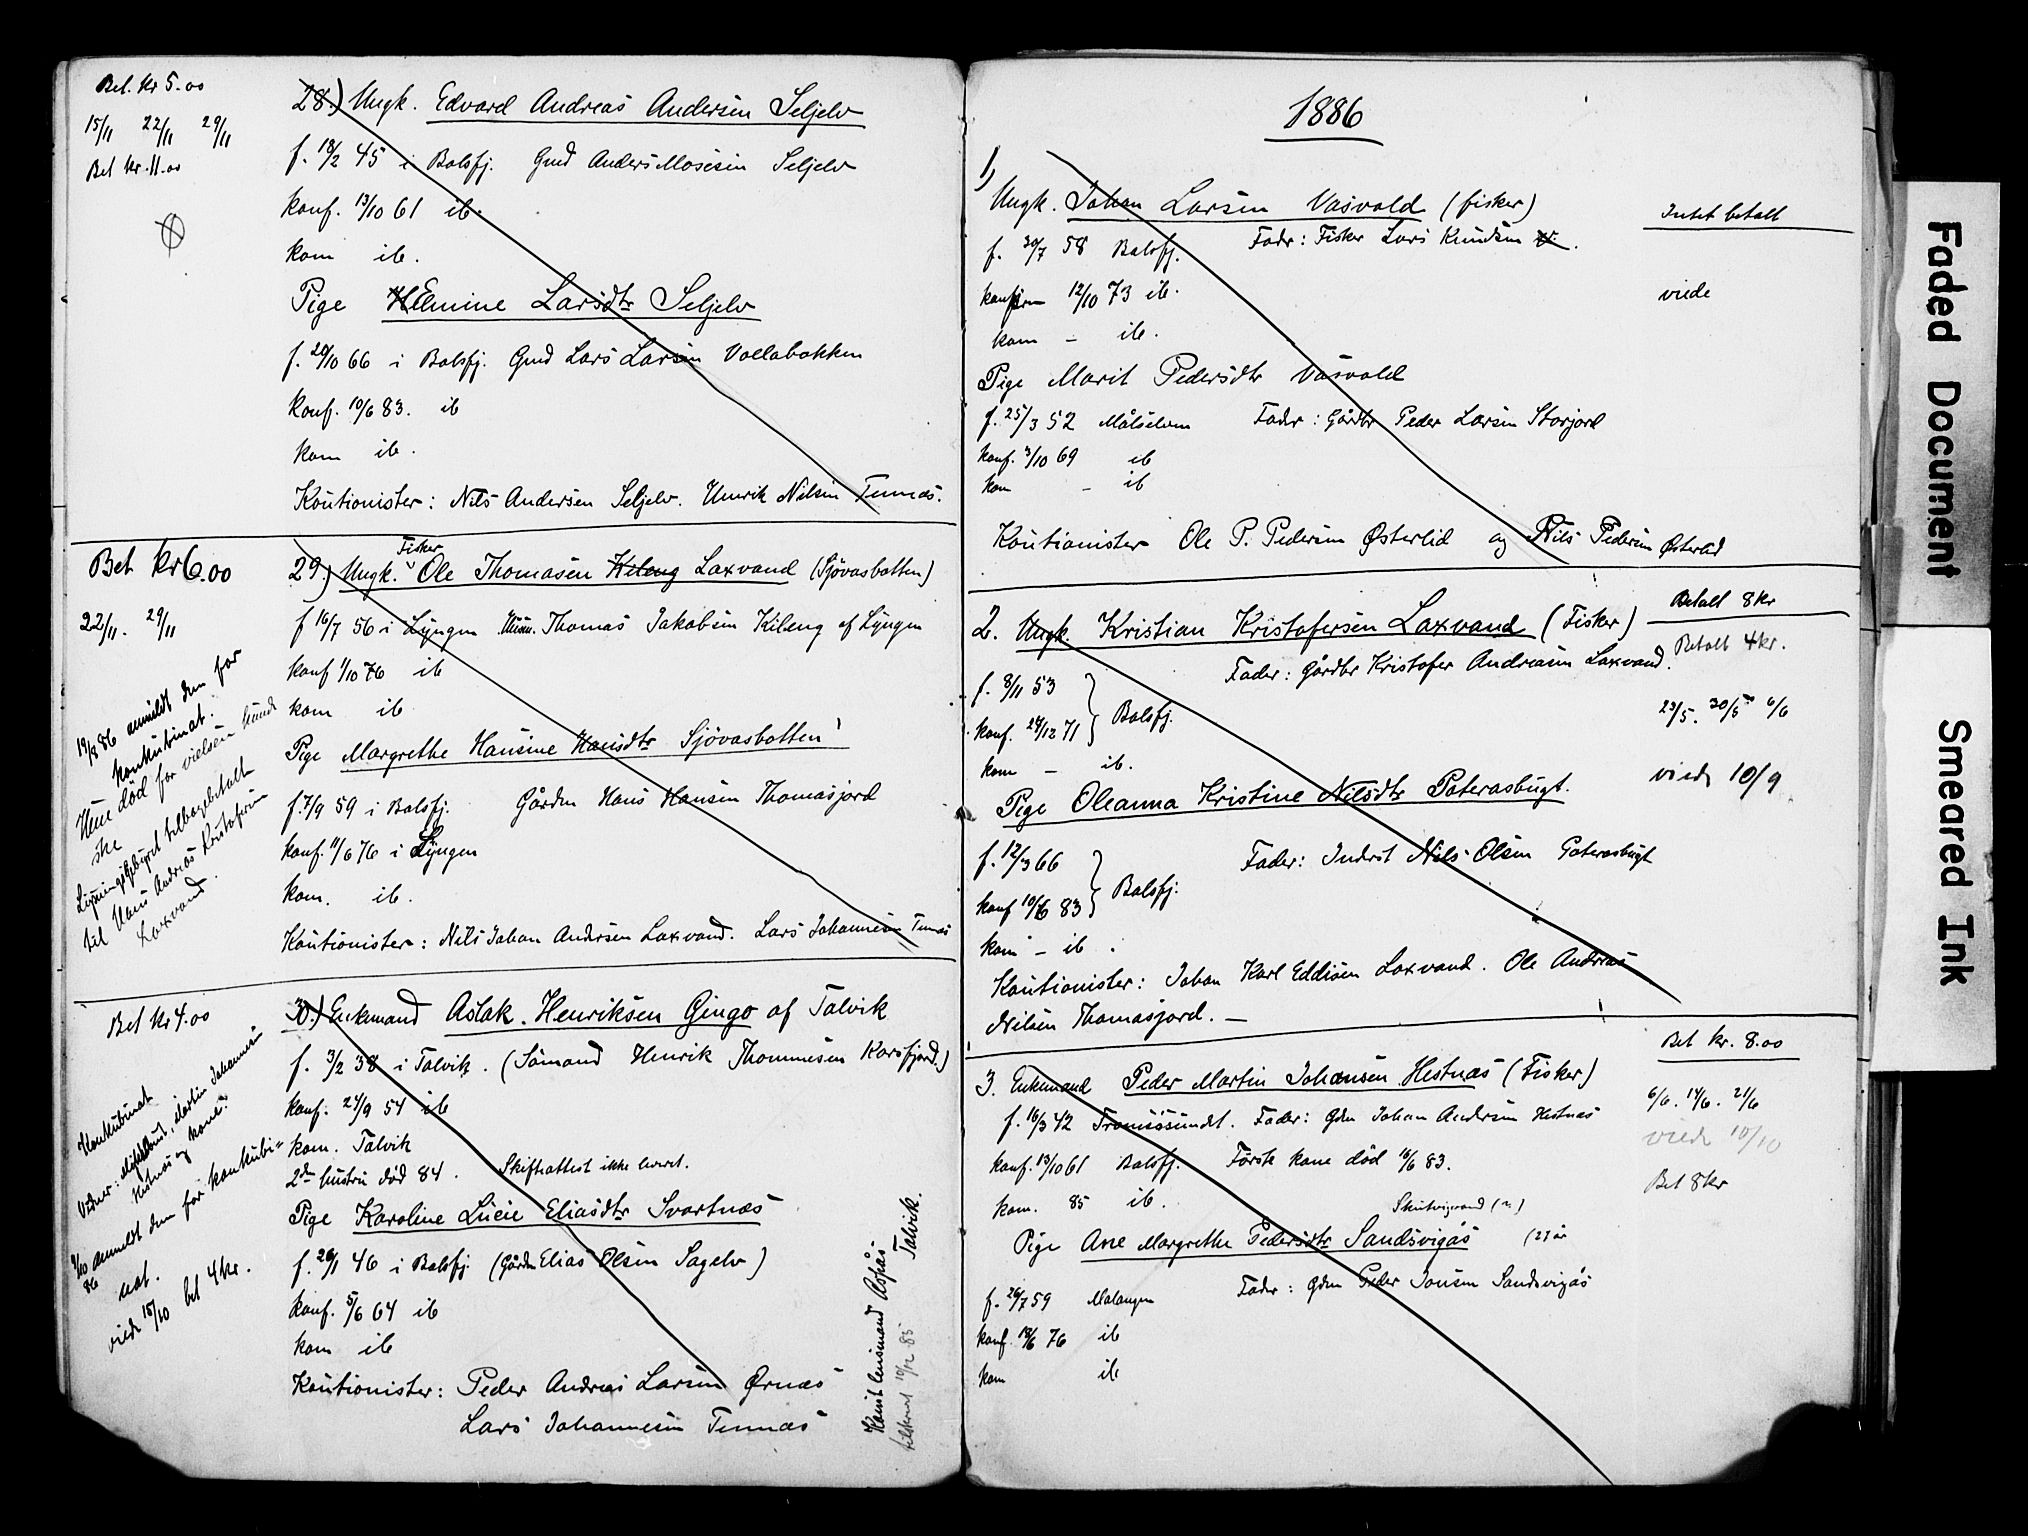 Bet. Kr 5.00
15/11 22/11 29/11
Bet Kr. 11.00
28.) Ungk. Edvard Andreas Andersen Seljelv
f. 18/2 45 i Balsfj. Gmd Anders Mosesen Seljelv
konf. 13/10 61 ib.
kom ib.
Pige Elmine Larsdtr Seljelv
f. 20/10 66 i Balsfj. Gmd Lars Larsen Vollabakken
konf. 10/6 83. ib
kom ib.
Kautionister: Nils Andersen Seljelv. Henrik Nilsen Tennæs.
Bet Kr 6.00
22/11. 29/11
19/8 86 anmeldt dem for
konkubinat.
Hun död för vielsen kunde
ske
til Hans Andreas Kristofersen
Laxvand.
Fisker
29.) Ungk. Ole Thomasen Kileng Laxvand (Sjövasbotten)
f 16/7 56 i Lyngen Thomas Jakobsen Kileng af Lyngen
konf 1/10 76 ib
kom ib
Pige Margrethe Hansine Hansdtr Sjövasbotten
f. 7/9 59 i Balsfj. Gårdm Hans Hansen Thomasjord
konf. 11/6 76 i Lyngen
kom. ib.
Kautionister: Nils Johan Andersen Laxvand. Lars Johannesen Tennæs
Bet Kr 4.00
Konkubinat
Vidner: Martin Johannesen
Hestnæs og kone.
9/10 86 anmeldt dem for konkubi-
nat.
viede 15/10 bet 4 Kr.
30.) Enkemand Aslak Henriksen Gingo af Talvik
f. 3/2 38 i Talvik. (Sömand Henrik Thommesen Korsfjord.)
konf. 24/9 54 ib
kom. Talvik
2den hustru död 84. Skifteattest ikke leveret.
Pige Karoline Lucie Eliasdtr Svartnæs
f. 20/1 46 i Balsfj (Gårdm Elias Olsen Sagelv)
konf. 5/6 64 ib
kom ib
Kautionister: Peder Andreas Larsen Ørnæs
Lars Johannesen Tennæs
lensmand Talvik.
tilskrevet 19/12 85
1886
1)
Ungk. Johan Larsen Vasvald (fisker)
f. 30/7 58 Balsfj. Fader: Fisker Lars Knudsen
konfirm 12/10 73 ib.
kom - ib.
Pige Marit Pedersdtr Vasvald
f. 25/3 52 Målselven Fader: Gårdbr Peder Larsen Storjord
konf. 3/10 69 ib
kom - ib
Kautionister Ole P. Pedersen Østerlid og Nils Pedersen Østerlid
Intet betalt
viede
2. Ungk. Kristian Kristofersen Laxvand (Fisker)
Fader: Gårdbr Kristofer Andreasen Laxvand.
f. 8/11 53
konf. 24/12 71 Balsfj.
kom - ib.
Pige Oleanna Kristine Nilsdtr Paterasbugt.
f. 12/3 66 Fader: Inderst Nils Olsen Paterasbugt
konf 10/6 83 Balsfj.
kom - ib.
Kautionister: Johan Karl Eddisen Laxvand. Ole Andreas
Nilsen Thomasjord. -
Betalt 8 kr
Betalt 4 kr.
23/5. 30/5 6/6
viede 10/9
3. Enkemand Peder Martin Johansen Hestnæs (Fisker)
f. 16/3 42 Tromsösundet. Fader: Gdm Johan Andersen Hestnæs
konf. 13/10 61 Balsfj. Förste kone död 16/6 83.
kom. 85 ib.
Pige Ane Margrethe Pedersdtr Sandsvigås (27 år
f. 26/7 59 Malangen Fader: Gdm Peder Jonsen Sandsvigås
konf. 18/6 76 ib
kom ib
Bet kr. 8.00
6/6. 14/6. 21/6
viede 10/10
Bet 8 kr
Faded Document
Smeared Ink